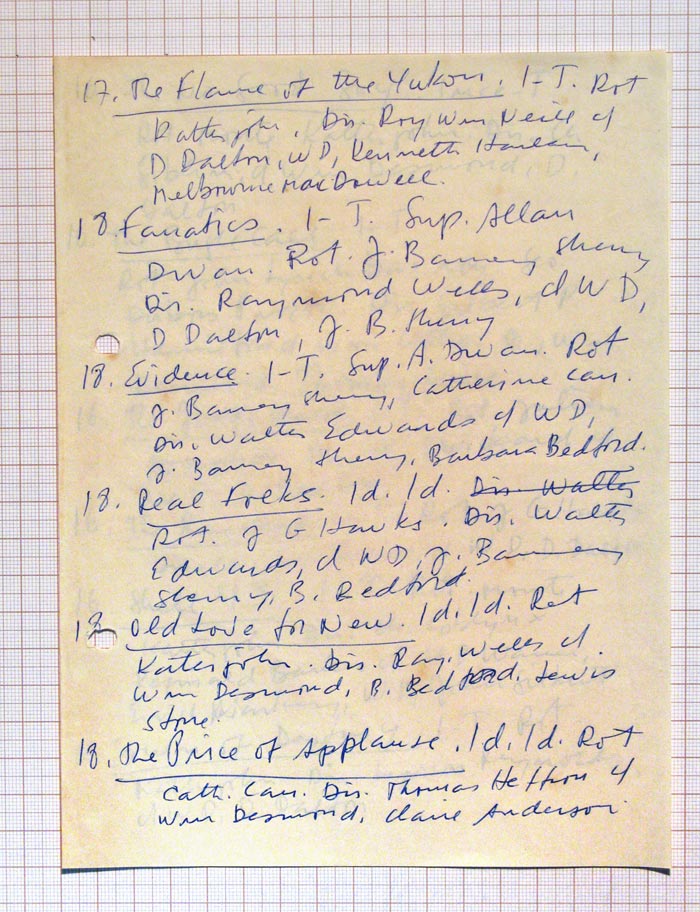 17. The Flame of the Yukon. I-T. Rot
Katterjohn. Dir. Roy Wm Neill cf
D Dalton, WD, Kenneth Harlan,
Melbourne MacDowell.
18 Fanatics. I-T. Sup. Allan
Dwan. Rot. J. Barney Sherry
Dir. Raymond Wells, cf WD,
D Dalton, J. B. Sherry
18. Evidence. I-T. Sup. A. Dwan. Rot
J. Barney Sherry, Catherine Carr.
Dir. Walter Edwards cf WD,
J. Barney Sherry, Barbara Bedford.
18. Real Folks. Id. Id. Dir Walter
Rot. J G Hawks. Dir. Walter
Edwards, cf WD, J. Barney
Sherry, B. Bedford.
18. Old Love for New. Id. Id. Rot
Katterjohn. Dir. Ray. Wells cf.
Wm Desmond, B. Bedford, Lewis
Stone.
18. The Price of Applause. Id. Id. Rot
Cath. Carr. Dir. Thomas Heffron cf
Wm Desmond, Claire Anderson